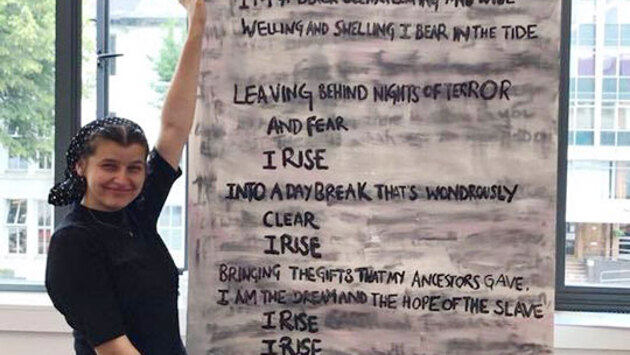 WELLING AND SWELLING I BEAR IN THE TIDE
LEAVING BEHIND NIGHTS OF TERROR
AND FEAR
I RISE
INTO A DAYBREAK THAT'S WONDROUSLY
CLEAR
I RISE
BRINGING THE GIFTS THAT MY ANCESTORS GAVE,
I AM THE DREAM AND THE HOPE OF THE SLAVE
I RISE
I RISE